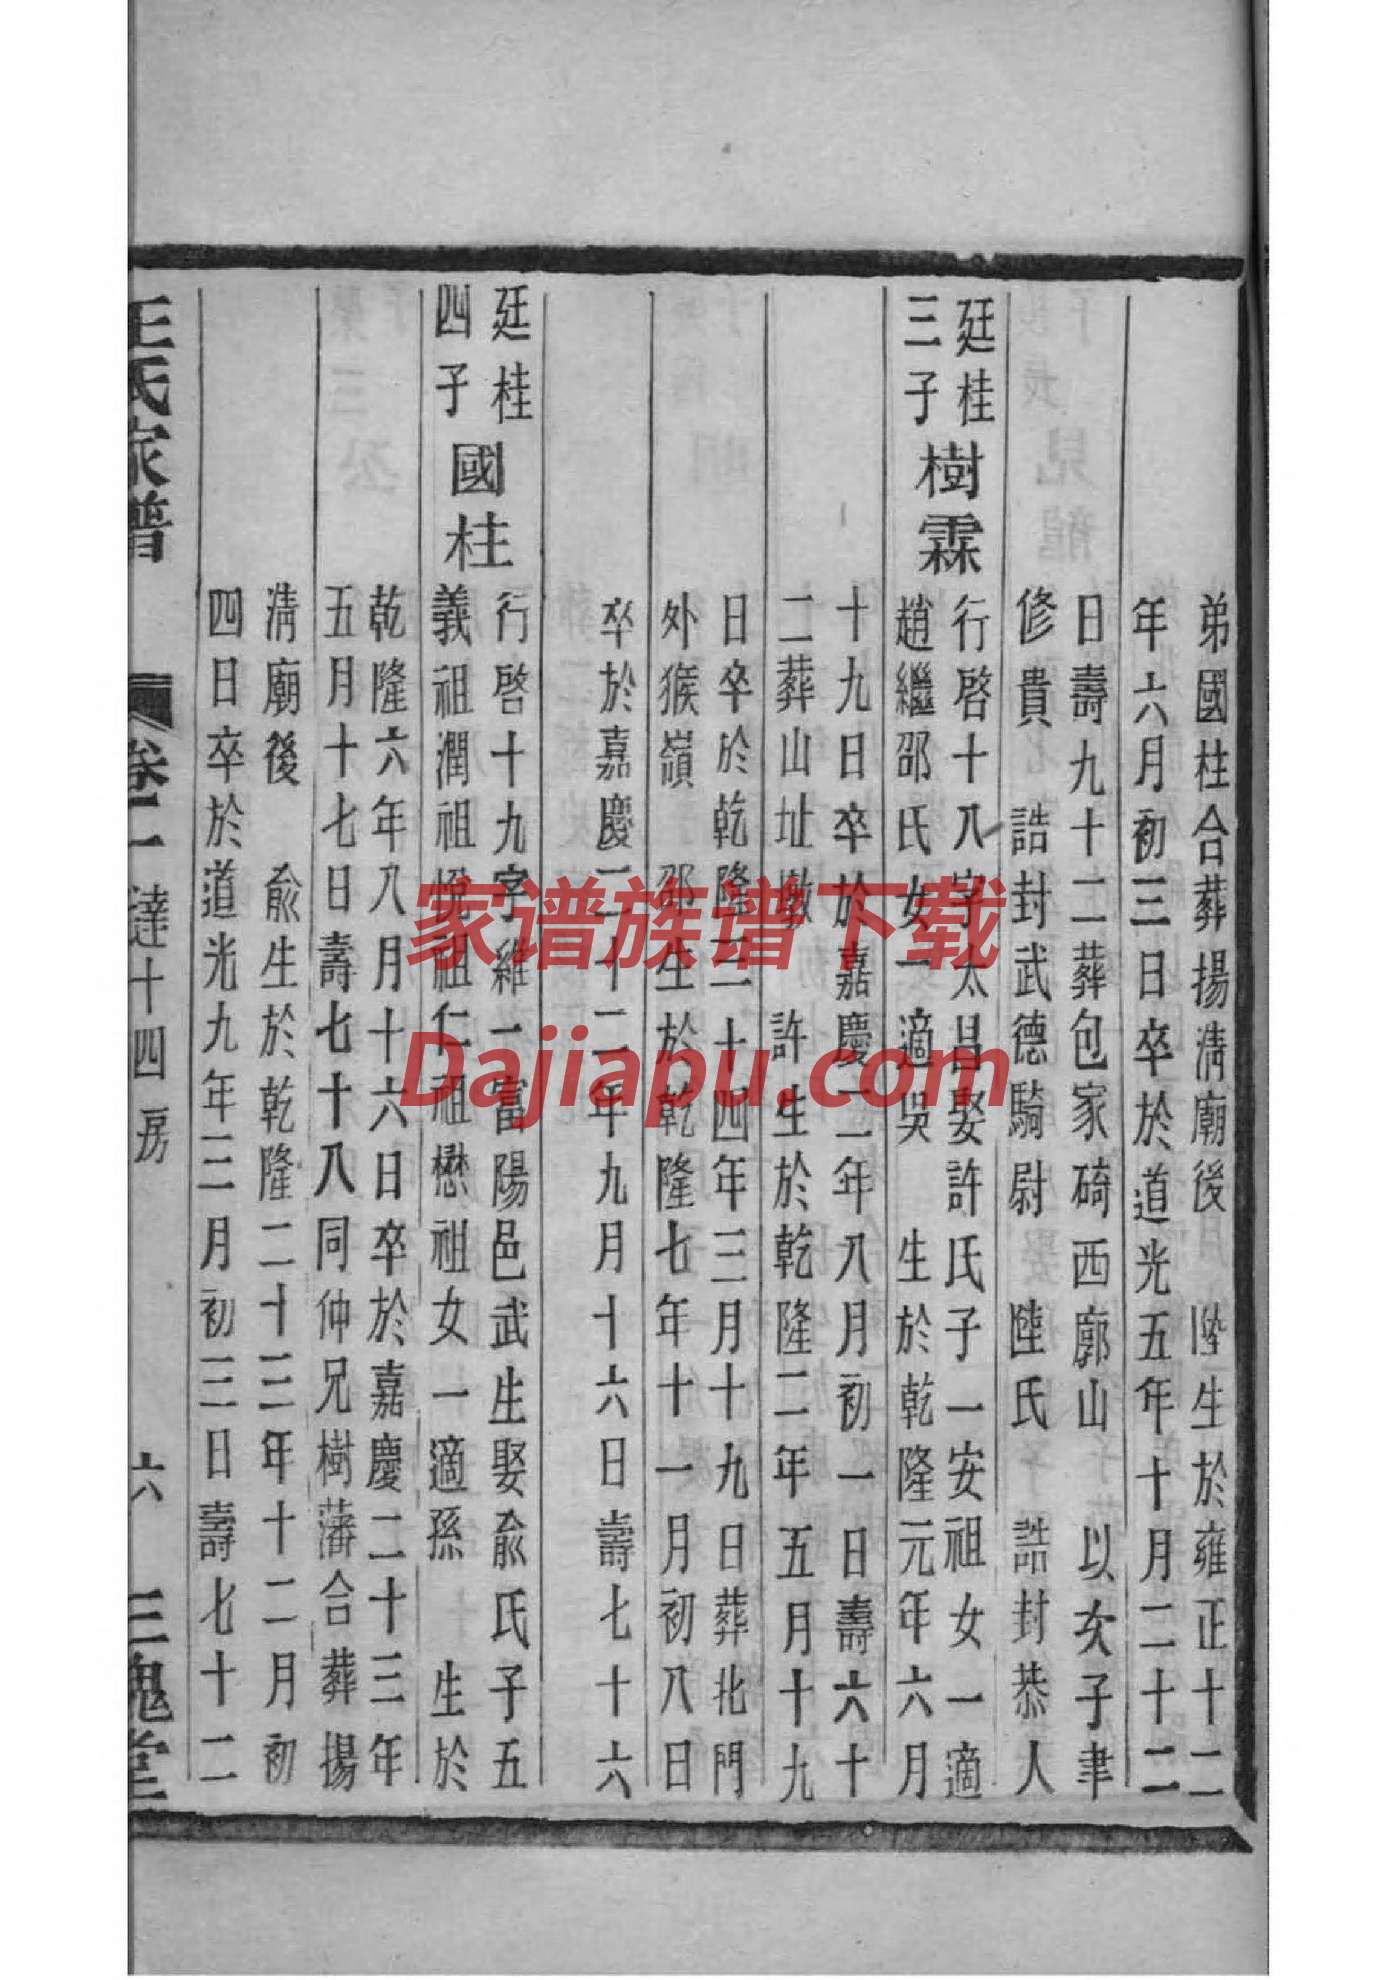 弟國柱合葬揚清廟後 陸生於雍正十二
年六月初三日卒於道光五年十月二十二
日壽九十二葬包家碕西廓山 以次子聿
修貴 誥封武德騎尉 陸氏 誥封恭人
廷桂
三子
樹霖
行啓十八字太昌娶許氏子一安祖女一適
趙繼邵氏女一適吳 生於乾隆元年六月
十九日卒於嘉慶二年八月初一日壽六十
二葬山址墩 許生於乾隆二年五月十九
日卒於乾隆三十四年三月十九日葬北門
外猴嶺 邵生於乾隆七年十一月初八日
卒於嘉慶二十二年九月十六日壽七十六
廷桂
四子
國柱
行啓十九字維一富陽邑武生娶俞氏子五
義祖潤祖悅祖仁祖懋祖女一適孫 生於
乾隆六年八月十六日卒於嘉慶二十三年
五月十七日壽七十八同仲兄樹藩合葬揚
清廟後 俞生於乾隆二十三年十二月初
四日卒於道光九年三月初三日壽七十二
王氏家譜 卷二 達十四房 六 三槐堂
家谱族谱下载
Dajiapu.com